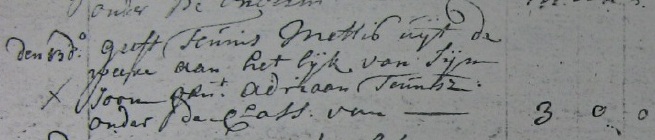 onder de
den 13 d:o geeft Teunis Mettis uijt de
aan het lijk van Sijn
X Soon gen:t adriaan Teunisz:
onder de Class. van — 3 0 0